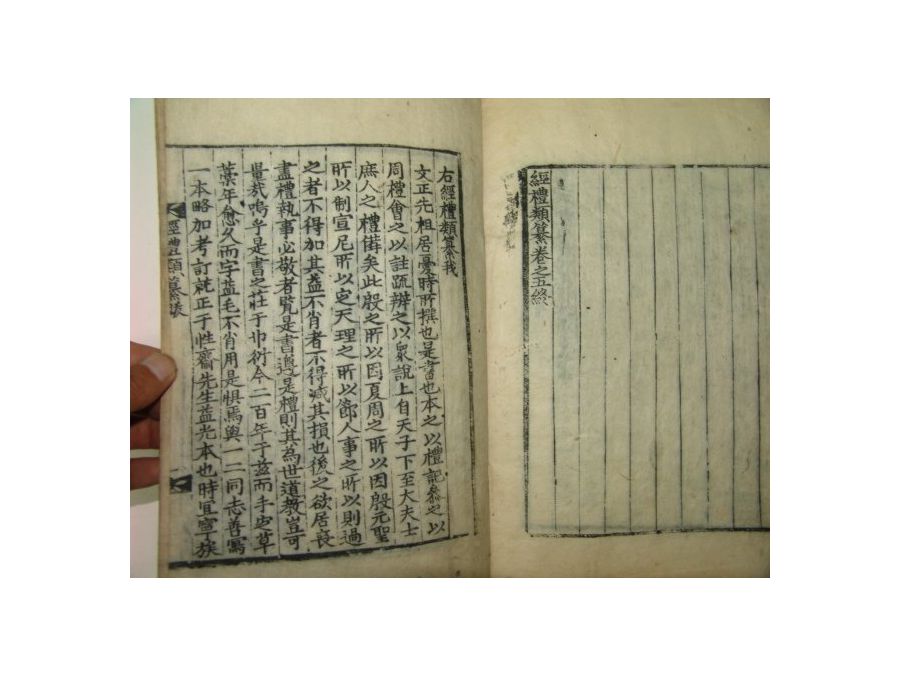 經禮類纂卷之五終
右經禮類纂我
文正先祖居憂時所撰也是書也本之以禮記參之以
周禮會之以註疏辨之以衆說上自天子下至大夫士
庶人之禮備矣此殷之所以因夏周之所以因殷元聖
所以制宣尼所以定天理之所以節人事之所以則過
之者不得加其益不肖者不得减其損也後之欲居喪
盡禮執事必敬者覽是書遵是禮則其為世道敎豈可
量哉嗚乎是書之莊于巾衍今二百年于玆而手
藁年愈久而字益毛不肖用是惧焉與一二同志善寫
一本略加考訂就正于性齋先生益光本也時冝寧族